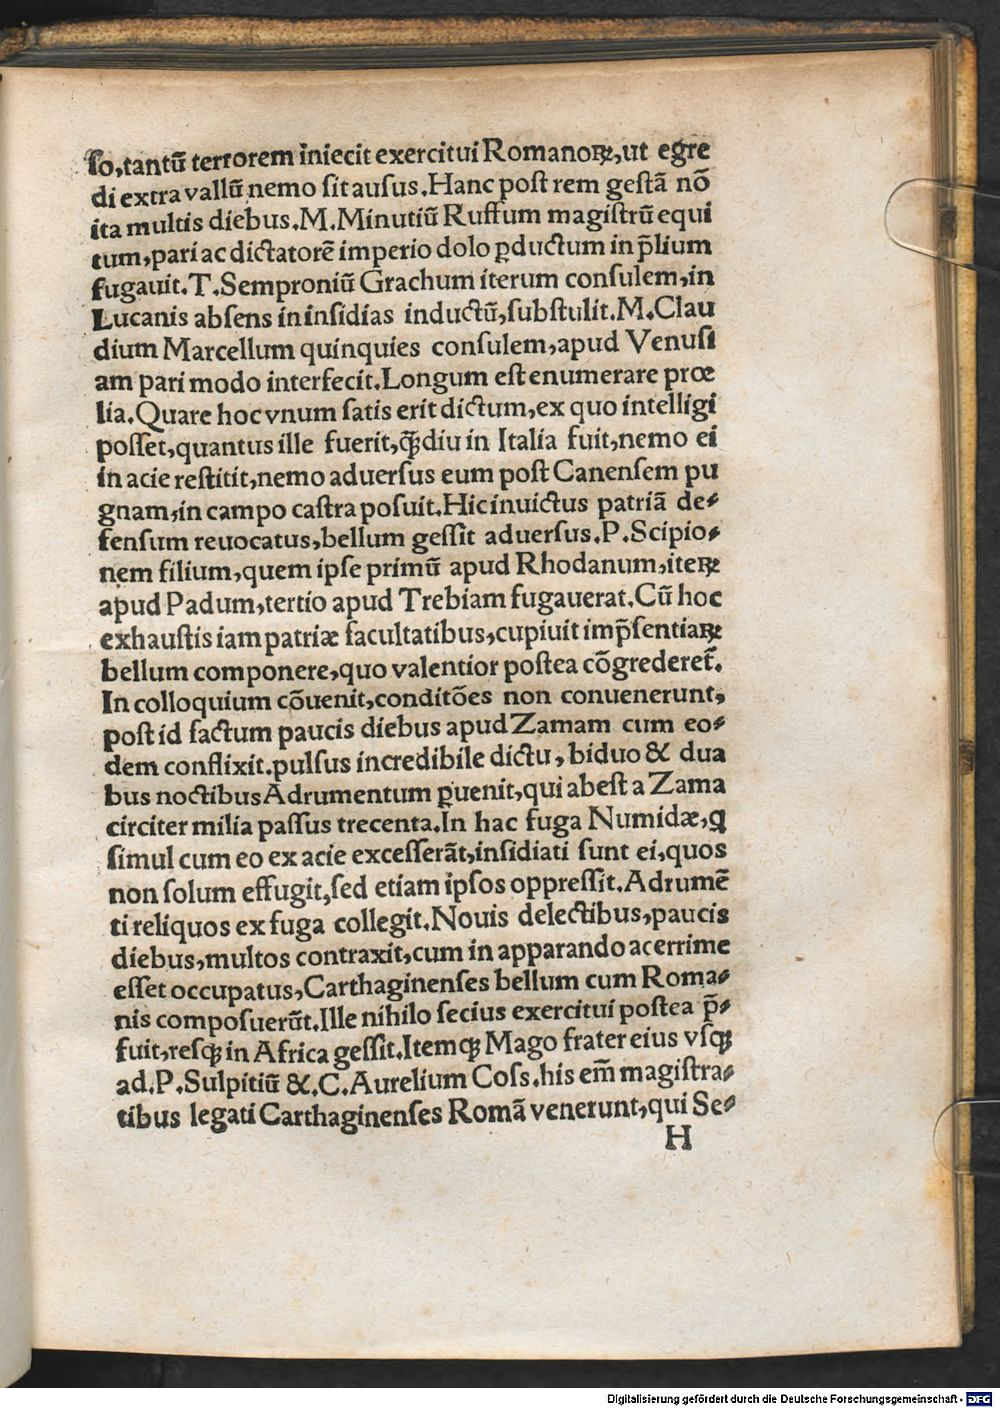 ſo,tantū terrorem iniecit exercitui Romanoꝝ,ut egre
di extra vallū nemo ſit auſus.Hanc poſt rem geſtā nō
ita multis diebus.M.Minutiū Ruffum magiſtrū equi
tum,pari ac dictatorē imperio dolo ꝑductum in p̄lium
fugauit.T.Semproniū Grachum iterum conſulem,in
Lucanis abſens in inſidias inductū,ſubſtulit.M.Clau
dium Marcellum quinquies conſulem,apud Venuſi
am pari modo interfecit.Longum eſt enumerare prœ
lia.Quare hoc vnum ſatis erit dictum,ex quo intelligi
poſſet,quantus ille fuerit,q̄ꝫdiu in Italia fuit,nemo ei
in acie reſtitit,nemo aduerſus eum poſt Canenſem pu
gnam,in campo caſtra poſuit.Hic inuictus patriā de⸗
fenſum reuocatus,bellum geſſit aduerſus.P.Scipio⸗
nem filium,quem ipſe primū apud Rhodanum,iteꝝ
apud Padum,tertio apud Trebiam fugauerat.Cū hoc
exhauſtis iam patriæ facultatibus,cupiuit imp̄ſentiaꝝ
bellum componere,quo valentior poſtea cōgrederet̄.
In colloquium cōuenit,conditōes non conuenerunt,
poſt id factum paucis diebus apud Zamam cum eo⸗
dem conflixit.pulſus incredibile dictu, biduo & dua
bus noctibus Adrumentum ꝑuenit,qui abeſt a Zama
circiter milia paſſus trecenta.In hac fuga Numidæ,q
ſimul cum eo ex acie exceſſerāt,inſidiati ſunt ei,quos
non ſolum effugit,ſed etiam ipſos oppreſſit.Adrumē
ti reliquos ex fuga collegit.Nouis delectibus,paucis
diebus,multos contraxit,cum in apparando acerrime
eſſet occupatus,Carthaginenſes bellum cum Roma⸗
nis compoſuerūt.Ille nihilo ſecius exercitui poſtea p̄⸗
fuit,reſqꝫ in Africa geſſit.Itemqꝫ Mago frater eius vſqꝫ
ad.P.Sulpitiū &.C.Aurelium Coſs.his em̄ magiſtra⸗
tibus legati Carthaginenſes Romā venerunt,qui Se⸗
H
Digitalisierung gefördert durch die Deutsche Forschungsgemeinschaft - DFG